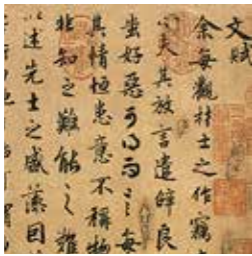 文賦
余每觀材士之作竊
心夫其放言遣辭良
蚩好惡可得而言每
其情恒患意不稱物
非知之難能之難
以述先士之盛藻因